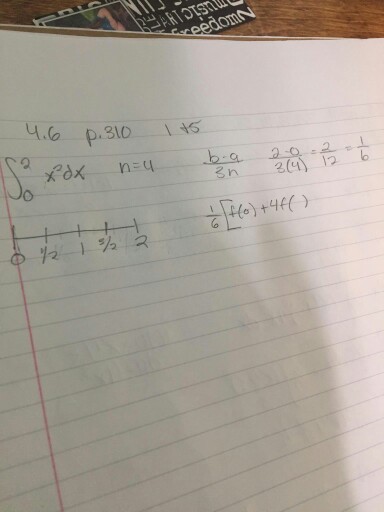 Freedom
4.6 p.310 1 + 5
∫₀² x²dx n=4 b-a/3n 2-0/3(4) = 2/12 = 1/6
1/6 [f(0) + 4f( )
0 1/2 1 3/2 2